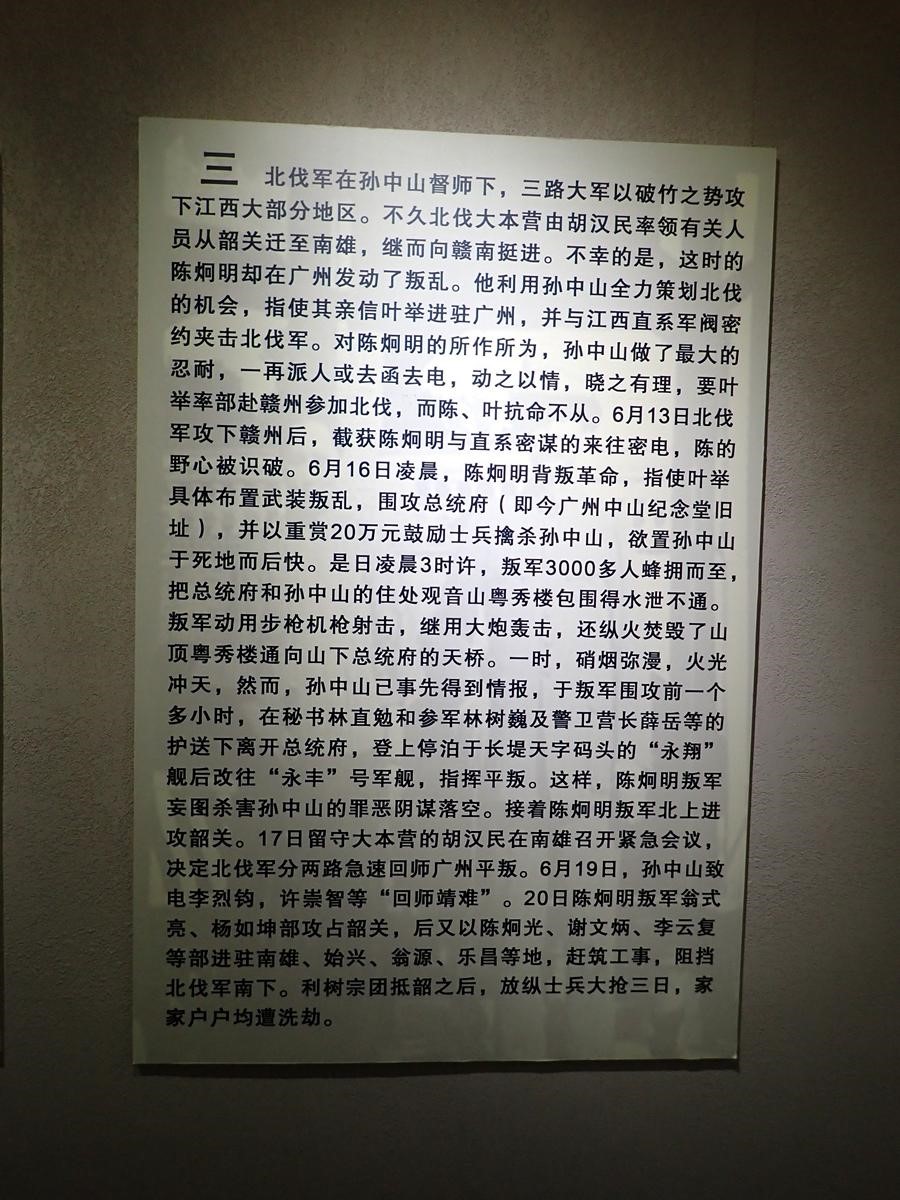 三 北伐军在孙中山督师下，三路大军以破竹之势攻
下江西大部分地区。不久北伐大本营由胡汉民率领有关人
员从韶关迁至南雄，继而向赣南挺进。不幸的是，这时的
陈炯明却在广州发动了叛乱。他利用孙中山全力策划北伐
的机会，指使其亲信叶举进驻广州，并与江西直系军阀密
约夹击北伐军。对陈炯明的所作所为，孙中山做了最大的
忍耐，一再派人或去函去电，动之以情，晓之有理，要叶
举率部赴赣州参加北伐，而陈、叶抗命不从。6月13日北伐
军攻下赣州后，截获陈炯明与直系密谋的来往密电，陈的
野心被识破。6月16日凌晨，陈炯明背叛革命，指使叶举
具体布置武装叛乱，围攻总统府（即今广州中山纪念堂旧
址），并以重赏20万元鼓励士兵擒杀孙中山，欲置孙中山
于死地而后快。是日凌晨3时许，叛军3000多人蜂拥而至，
把总统府和孙中山的住处观音山粤秀楼包围得水泄不通。
叛军动用步枪机枪射击，继用大炮轰击，还纵火焚毁了山
顶粤秀楼通向山下总统府的天桥。一时，硝烟弥漫，火光
冲天，然而，孙中山已事先得到情报，于叛军围攻前一个
多小时，在秘书林直勉和参军林树巍及警卫营长薛岳等的
护送下离开总统府，登上停泊于长堤天字码头的“永翔”
舰后改往“永丰”号军舰，指挥平叛。这样，陈炯明叛军
妄图杀害孙中山的罪恶阴谋落空。接着陈炯明叛军北上进
攻韶关。17日留守大本营的胡汉民在南雄召开紧急会议，
决定北伐军分两路急速回师广州平叛。6月19日，孙中山致
电李烈钧，许崇智等“回师靖难”。20日陈炯明叛军翁式
亮、杨如坤部攻占韶关，后又以陈炯光、谢文炳、李云复
等部进驻南雄、始兴、翁源、乐昌等地，赶筑工事，阻挡
北伐军南下。利树宗团抵韶之后，放纵士兵大抢三日，家
家户户均遭洗劫。